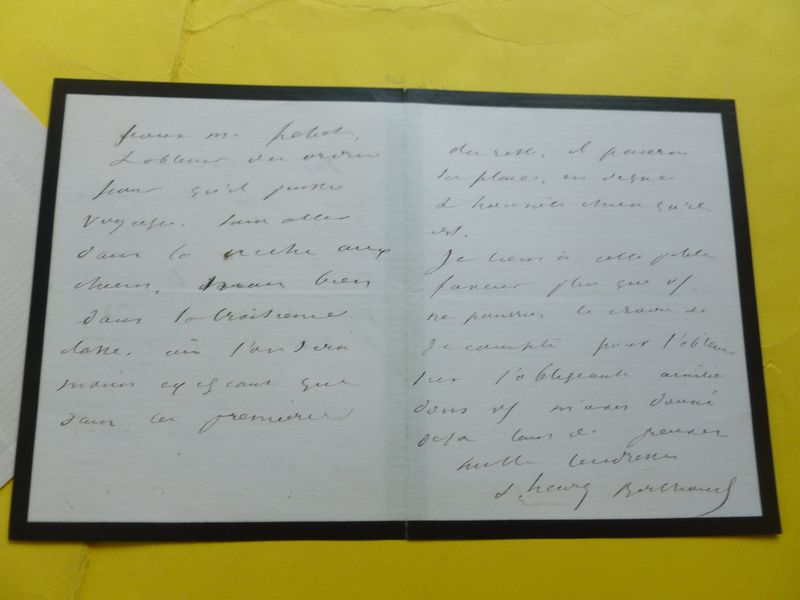 pour m.
d'obtenir des ordres
pour qu'il puisse
voyager. sans aller
dans la niche aux
chiens, mais bien
dans la troisième
classe. où l'on sera
moins exigeant que
dans les premières
du reste, il paiera
sa place, en digne
& honnête chien qu'il
est.
Je tiens à cette petite
faveur plus que vs.
ne pourriez le croire &
Je compte pour l'obtenir
sur l'obligeante amitié
dont vs m'avez donné
déjà tant de preuves
mille tendresses
S. henry Berthoud